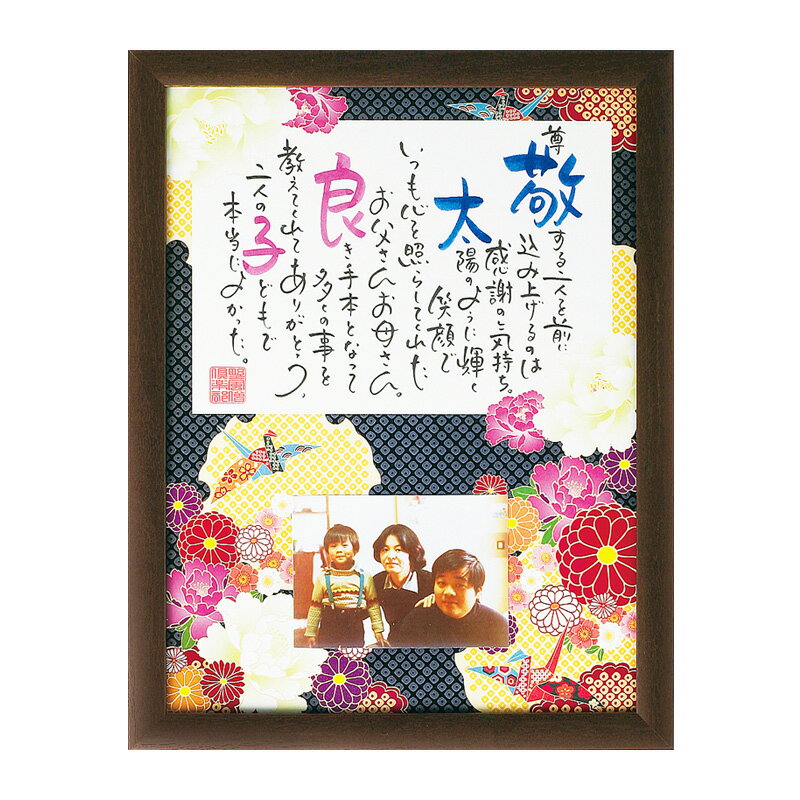 尊敬する二人を前に
込み上げるのは
感謝の気持ち。
太陽のように輝く
笑顔で
いつも心を照らしてくれた
お父さんお母さん。
良き手本となって
多くの事を
教えてくれてありがとう、
二人の子どもで
本当によかった。